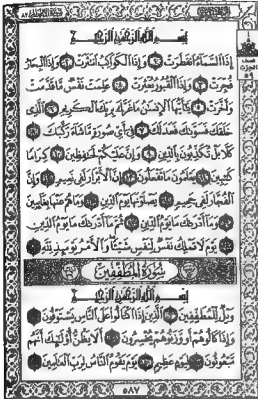 بِسْمِ اللَّهِ الرَّحْمَٰنِ الرَّحِيمِ
إِذَا السَّمَاءُ انفَطَرَتْ ١ وَإِذَا الْكَوَاكِبُ انتَثَرَتْ ٢ وَإِذَا الْبِحَارُ
فُجِّرَتْ ٣ وَإِذَا الْقُبُورُ بُعْثِرَتْ ٤ عَلِمَتْ نَفْسٌ مَّا قَدَّمَتْ
وَأَخَّرَتْ ٥ يَا أَيُّهَا الْإِنسَانُ مَا غَرَّكَ بِرَبِّكَ الْكَرِيمِ ٦ الَّذِي
خَلَقَكَ فَسَوَّاكَ فَعَدَلَكَ ٧ فِي أَيِّ صُورَةٍ مَّا شَاءَ رَكَّبَكَ ٨
كَلَّا بَلْ تُكَذِّبُونَ بِالدِّينِ ٩ وَإِنَّ عَلَيْكُمْ لَحَافِظِينَ ١٠ كِرَامًا
كَاتِبِينَ ١١ يَعْلَمُونَ مَا تَفْعَلُونَ ١٢ إِنَّ الْأَبْرَارَ لَفِي نَعِيمٍ ١٣ وَإِنَّ
الْفُجَّارَ لَفِي جَحِيمٍ ١٤ يَصْلَوْنَهَا يَوْمَ الدِّينِ ١٥ وَمَا هُمْ عَنْهَا بِغَائِبِينَ
١٦ وَمَا أَدْرَاكَ مَا يَوْمُ الدِّينِ ١٧ ثُمَّ مَا أَدْرَاكَ مَا يَوْمُ الدِّينِ
١٨ يَوْمَ لَا تَمْلِكُ نَفْسٌ لِّنَفْسٍ شَيْئًا وَالْأَمْرُ يَوْمَئِذٍ لِّلَّهِ ١٩
سُورَةُ الْمُطَفِّفِينَ
بِسْمِ اللَّهِ الرَّحْمَٰنِ الرَّحِيمِ
وَيْلٌ لِّلْمُطَفِّفِينَ ١ الَّذِينَ إِذَا اكْتَالُوا عَلَى النَّاسِ يَسْتَوْفُونَ ٢
وَإِذَا كَالُوهُمْ أَو وَّزَنُوهُمْ يُخْسِرُونَ ٣ أَلَا يَظُنُّ أُولَٰئِكَ أَنَّهُم
مَّبْعُوثُونَ ٤ لِيَوْمٍ عَظِيمٍ ٥ يَوْمَ يَقُومُ النَّاسُ لِرَبِّ الْعَالَمِينَ ٦
٥٨٧